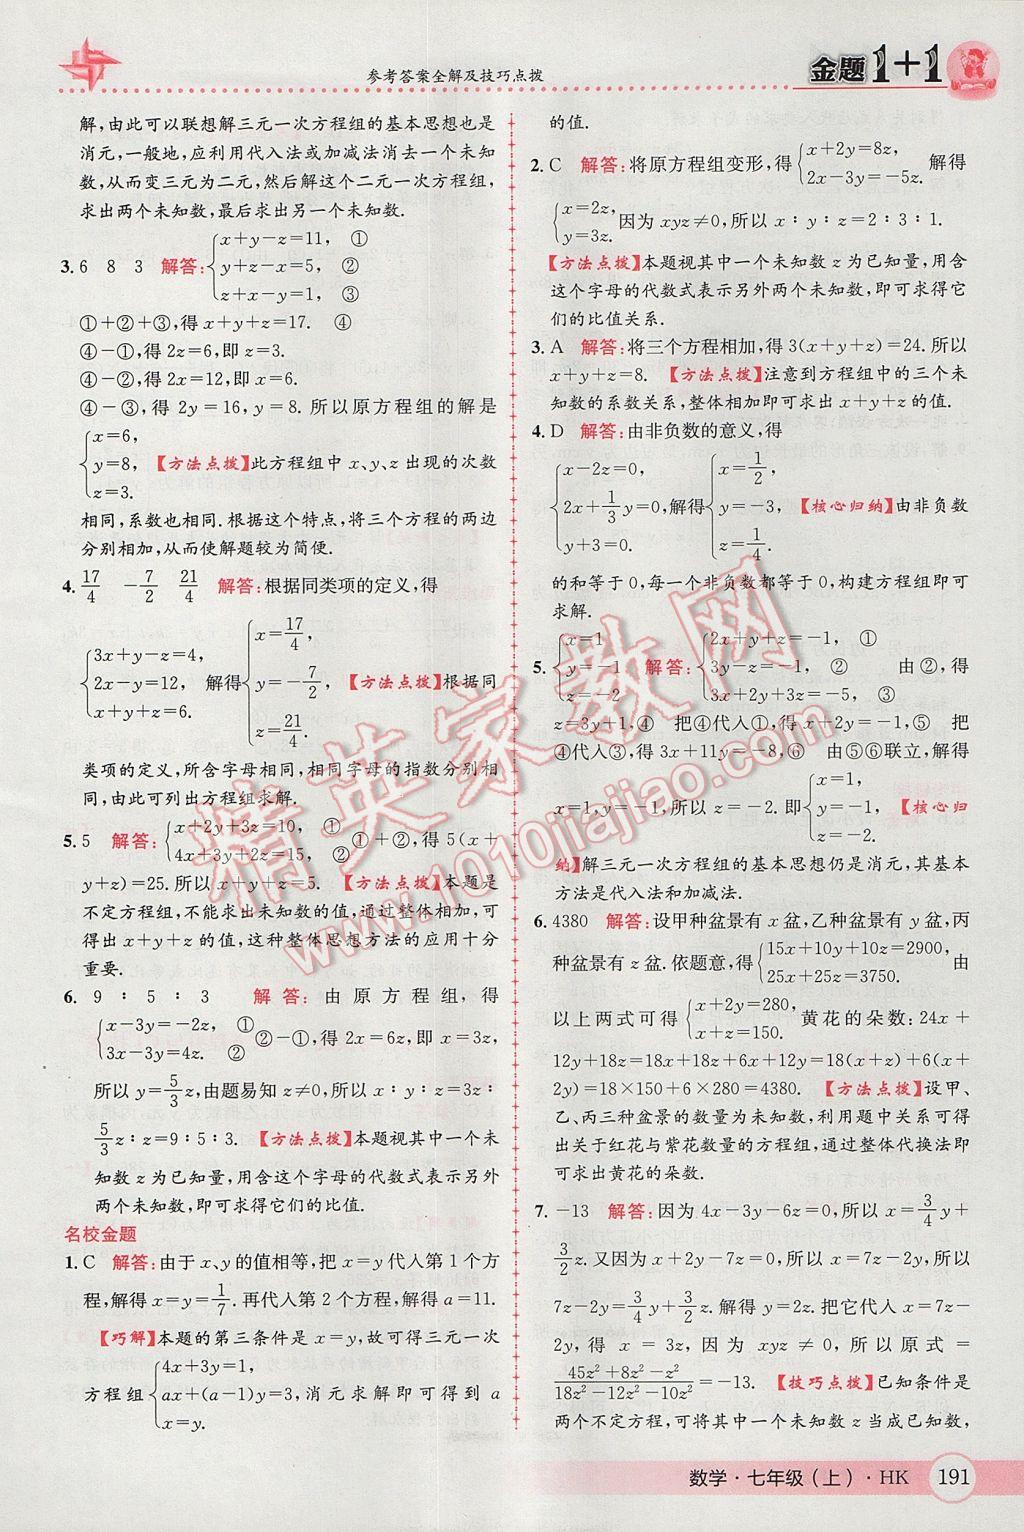 参考答案全解及技巧点拨
金题1+1
解,由此可以联想解三元一次方程组的基本思想也是
消元,一般地,应利用代入法或加减法消去一个未知
数,从而变三元为二元,然后解这个二元一次方程组,
求出两个未知数,最后求出另一个未知数.
3. 6 8 3 解答:{x+y-z=11, ①
y+z-x=5, ②
z+x-y=1, ③
①+②+③,得 x+y+z=17. ④
④-①,得 2z=6,即 z=3.
④-②,得 2x=12,即 x=6.
④-③,得 2y=16,y=8. 所以原方程组的解是
{x=6,
y=8, 【方法点拨】此方程组中 x、y、z 出现的次数
z=3.
相同,系数也相同.根据这个特点,将三个方程的两边
分别相加,从而使解题较为简便.
4. 17/4 -7/2 21/4 解答:根据同类项的定义,得
{3x+y-z=4,
2x-y=12,
x+y+z=6.
解得{x=17/4,
y=-7/2, 【方法点拨】根据同
z=21/4.
类项的定义,所含字母相同,相同字母的指数分别相
同,由此可列出方程组求解.
5. 5 解答:{x+2y+3z=10, ①
4x+3y+2z=15, ②
①+②,得 5(x+
y+z)=25.所以 x+y+z=5. 【方法点拨】本题是
不定方程组,不能求出未知数的值,通过整体相加,可
得出 x+y+z 的值,这种整体思想方法的应用十分
重要.
6. 9∶5∶3 解答:由原方程组,得
{x-3y=-2z, ①
3x-3y=4z. ②
②-①,得 2x=6z,即 x=3z,
所以 y=5/3z,由题易知 z≠0,所以 x∶y∶z=3z∶
5/3z∶z=9∶5∶3. 【方法点拨】本题视其中一个未
知数 z 为已知量,用含这个字母的代数式表示另外
两个未知数,即可求得它们的比值.
名校金题
1. C 解答:由于 x、y 的值相等,把 x=y 代人第 1 个方
程,解得 x=y=1/7.再代人第 2 个方程,解得 a=11.
【巧解】本题的第三条件是 x=y,故可得三元一次
方程组{4x+3y=1,
ax+(a-1)y=3,消元求解即可得到 a
x=y.
的值.
2. C 解答:将原方程组变形,得{x+2y=8z,
2x-3y=-5z. 解得
{x=2z,
y=3z. 因为 xyz≠0,所以 x∶y∶z=2∶3∶1.
【方法点拨】本题视其中一个未知数 z 为已知量,用含
这个字母的代数式表示另外两个未知数,即可求得它
们的比值关系.
3. A 解答:将三个方程相加,得 3(x+y+z)=24.所以
x+y+z=8. 【方法点拨】注意到方程组中的三个未
知数的系数关系,整体相加即可求出 x+y+z 的值.
4. D 解答:由非负数的意义,得
{x-2z=0,
2x+1/3y=0,
y+3=0.
解得{x=1/2,
y=-3, 【核心归纳】由非负数
z=1/4.
的和等于0,每一个非负数都等于0,构建方程组即可
求解.
5. {x=1
y=-1
z=-2
解答:{2x+y+z=-1, ①
3y-z=-1, ②
3x+2y+3z=-5, ③
由②,得
z=3y+1,④ 把④代入①,得 x+2y=-1,⑤ 把
④代入③,得 3x+11y=-8,⑥ 由⑤⑥联立,解得
x=1,y=-1,所以 z=-2.即{x=1,
y=-1, 【核心归
z=-2.
纳】解三元一次方程组的基本思想仍是消元,其基本
方法是代入法和加减法.
6. 4380 解答:设甲种盆景有 x 盆,乙种盆景有 y 盆,丙
种盆景有 z 盆.依题意,得{15x+10y+10z=2900,
25x+25z=3750. 由
以上两式可得{x+2y=280,
x+z=150. 黄花的朵数:24x+
12y+18z=18x+18z+6x+12y=18(x+z)+6(x+
2y)=18×150+6×280=4380. 【方法点拨】设甲、
乙、丙三种盆景的数量为未知数,利用题中关系可得
出关于红花与紫花数量的方程组,通过整体代换法即
可求出黄花的朵数.
7. -13 解答:因为 4x-3y-6z=0,所以 x=3/4y+
3/2z.又因为 x+2y-7z=0,所以 x=7z-2y,所以
7z-2y=3/4y+3/2z.解得 y=2z.把它代人 x=7z-
2y,得 x=3z,因为 xyz≠0,所以原式=
(45z²+8z²-z²)/(18z²-12z²-10z²)=-13. 【技巧点拨】已知条件是
两个不定方程,可将其中一个未知数 z 当成已知数,
精英家教网
www.1010jiajiao.com
数学·七年级(上)·HK 191